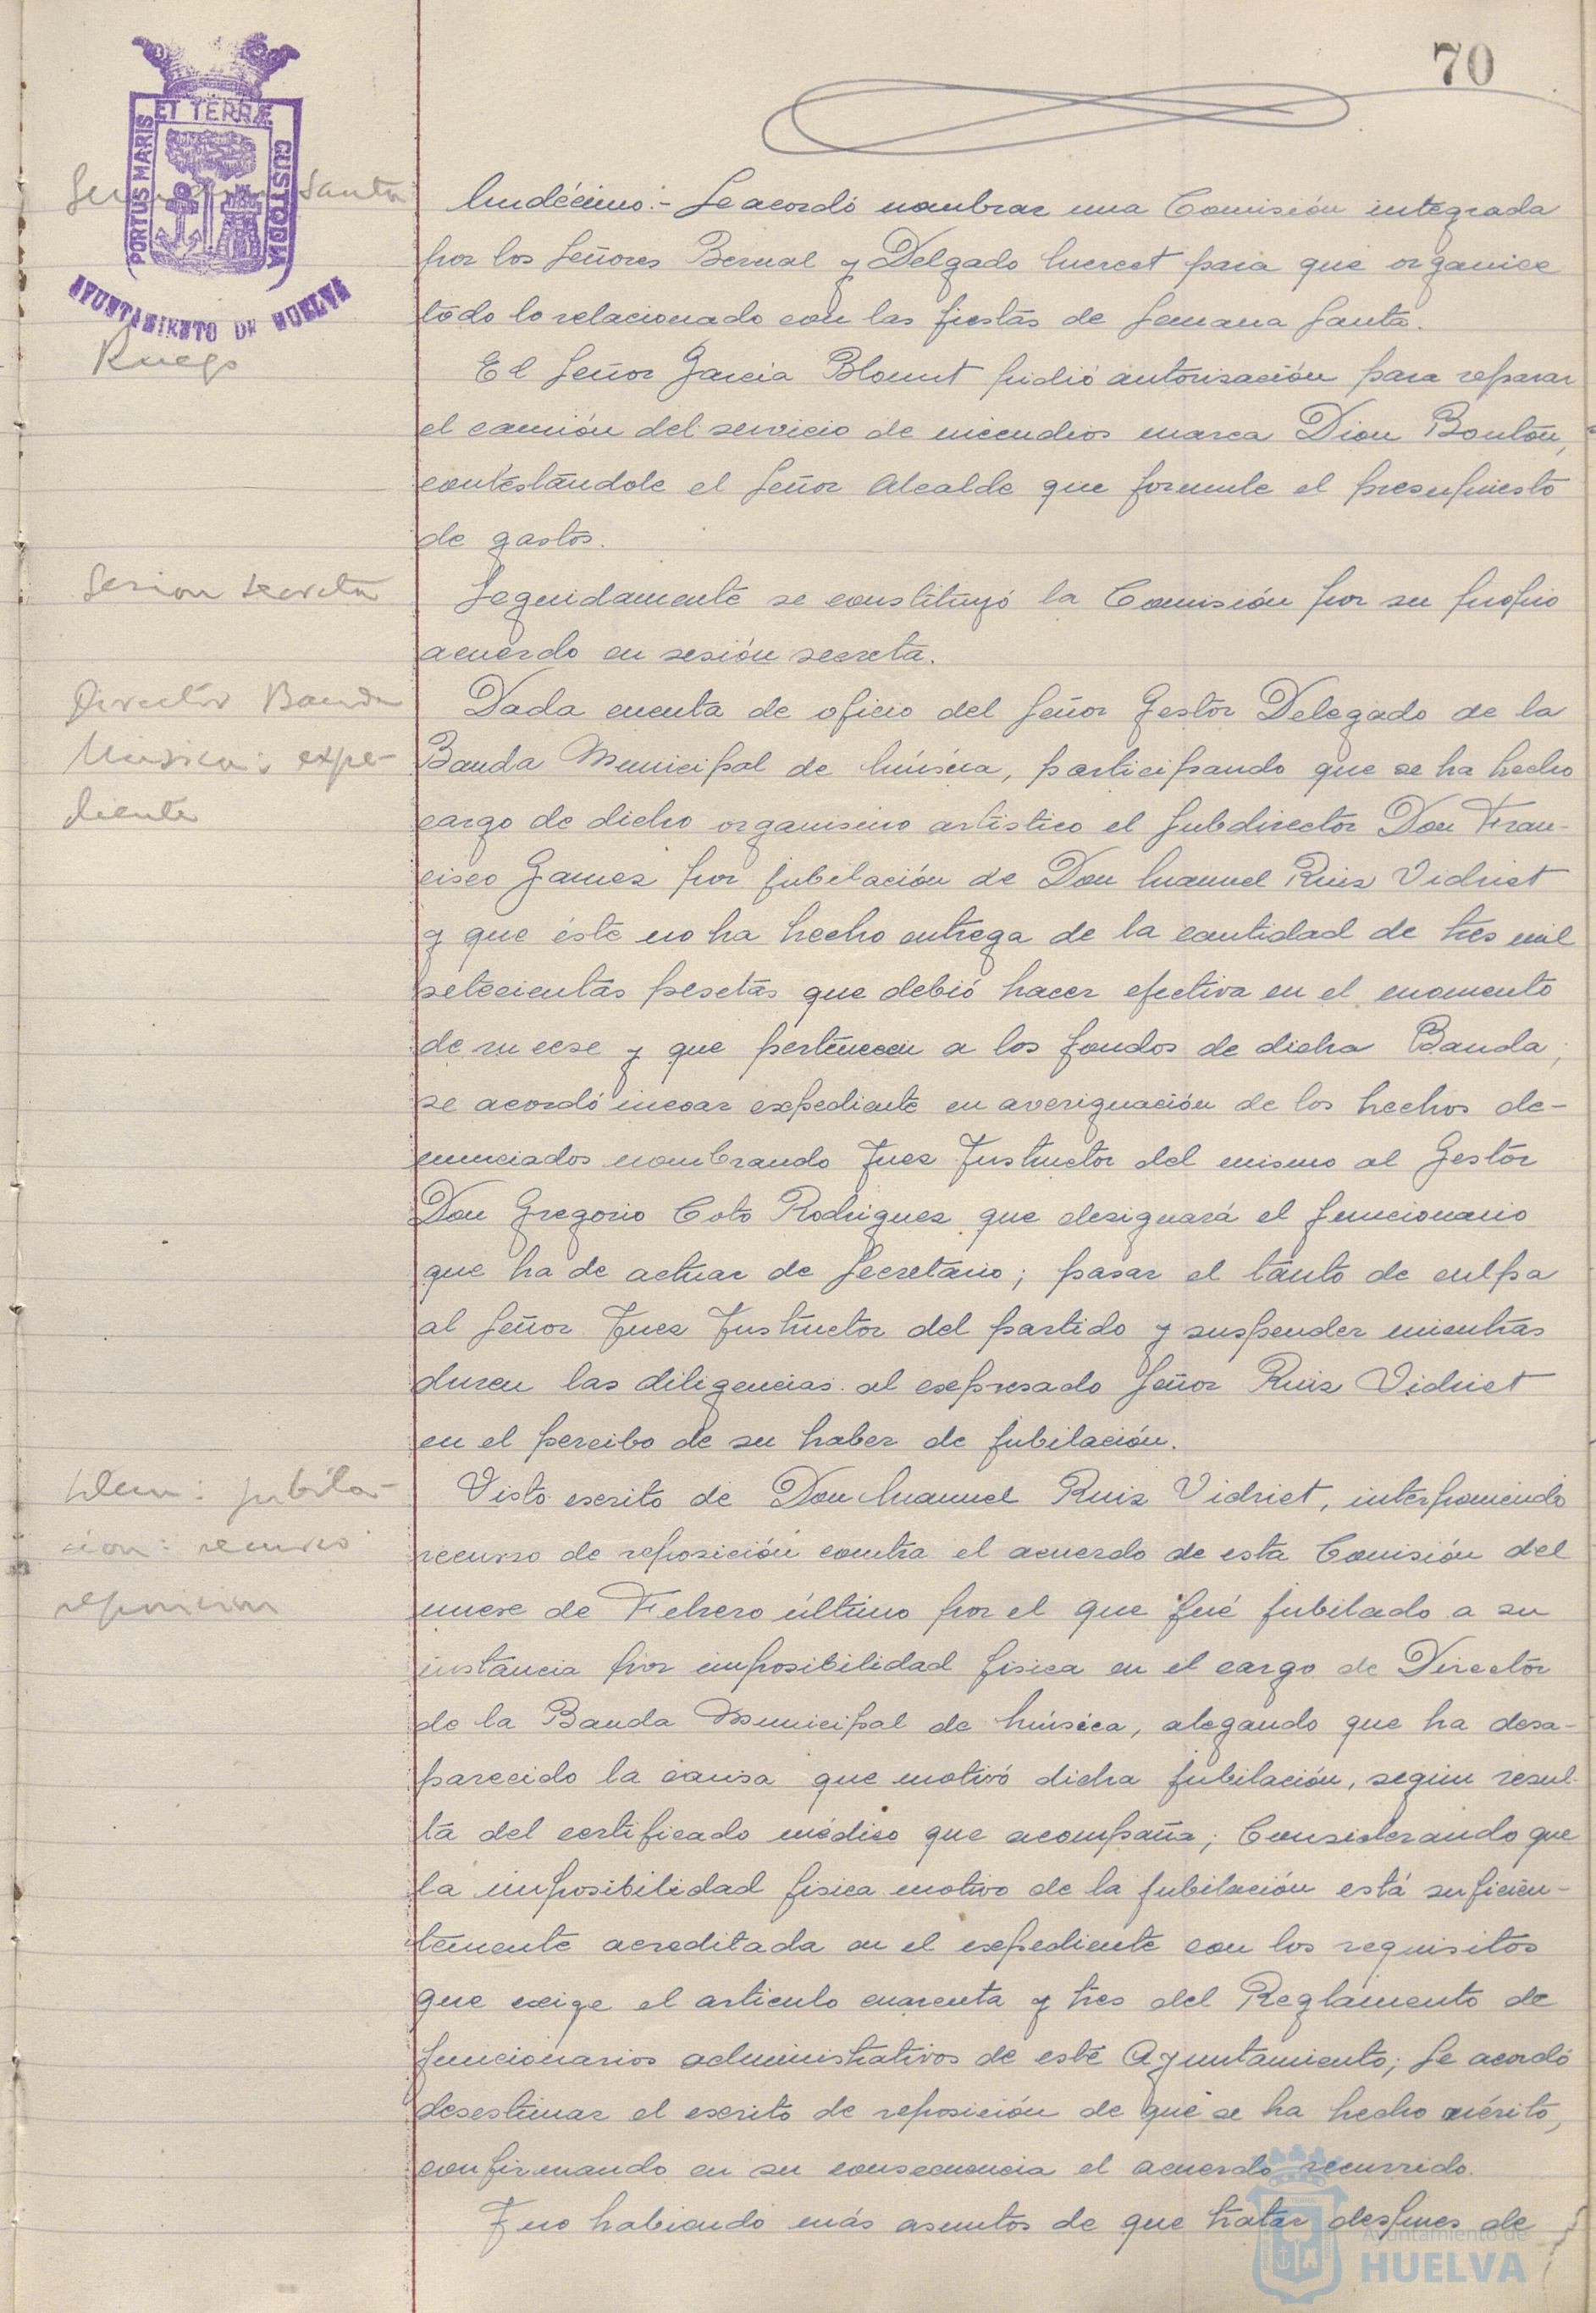 70
PORTUS MARIS
ET TERRÆ
CUSTODIA
AYUNTAMIENTO DE HUELVA
Santa
Undécimo:- Se acordó nombrar una Comisión integrada
por los Señores Bernal y Delgado para que organice
todo lo relacionado con las fiestas de Semana Santa.
Ruego
El Señor García Blount pidió autorisación para reparar
el camión del servicio de incendios marca Dion Bouton,
contestándole el Señor Alcalde que formule el presupuesto
de gastos.
Sesion secreta
Seguidamente se constituyó la Comisión por su propio
acuerdo en sesión secreta.
Director Banda
Musica: expe-
diente
Dada cuenta de oficio del Señor Gestor Delegado de la
Banda Municipal de Música, participando que se ha hecho
cargo de dicho organismo artistico el Subdirector Don Fran-
cisco Gamez por jubilación de Don Manuel Ruiz Vidriet
y que éste no ha hecho entrega de la cantidad de tres mil
setecientas pesetas que debió hacer efectiva en el momento
de su cese y que pertenecen a los fondos de dicha Banda,
se acordó incoar expediente en averiguación de los hechos de-
nunciados nombrando Juez Instructor del mismo al Gestor
Don Gregorio Coto Rodriguez que designará el funcionario
que ha de actuar de Secretario; pasar el tanto de culpa
al Señor Juez Instructor del partido y suspender mientras
duren las diligencias al expresado Señor Ruiz Vidriet
en el percibo de su haber de jubilación.
Idem: jubila-
cion: recurso
reposicion
Visto escrito de Don Manuel Ruiz Vidriet, interponiendo
recurso de reposición contra el acuerdo de esta Comisión del
nueve de Febrero último por el que fué jubilado a su
instancia por imposibilidad fisica en el cargo de Director
de la Banda Municipal de Música, alegando que ha desa-
parecido la causa que motivó dicha jubilación, según resul-
ta del certificado médico que acompaña; Considerando que
la imposibilidad fisica motivo de la jubilación está suficien-
temente acreditada en el expediente con los requisitos
que exige el articulo cuarenta y tres del Reglamento de
funcionarios administrativos de este Ayuntamiento; Se acordó
desestimar el escrito de reposición de que se ha hecho mérito,
confirmando en su consecuencia el acuerdo recurrido.
Y no habiendo más asuntos de que tratar despues de
Ayuntamiento de
HUELVA